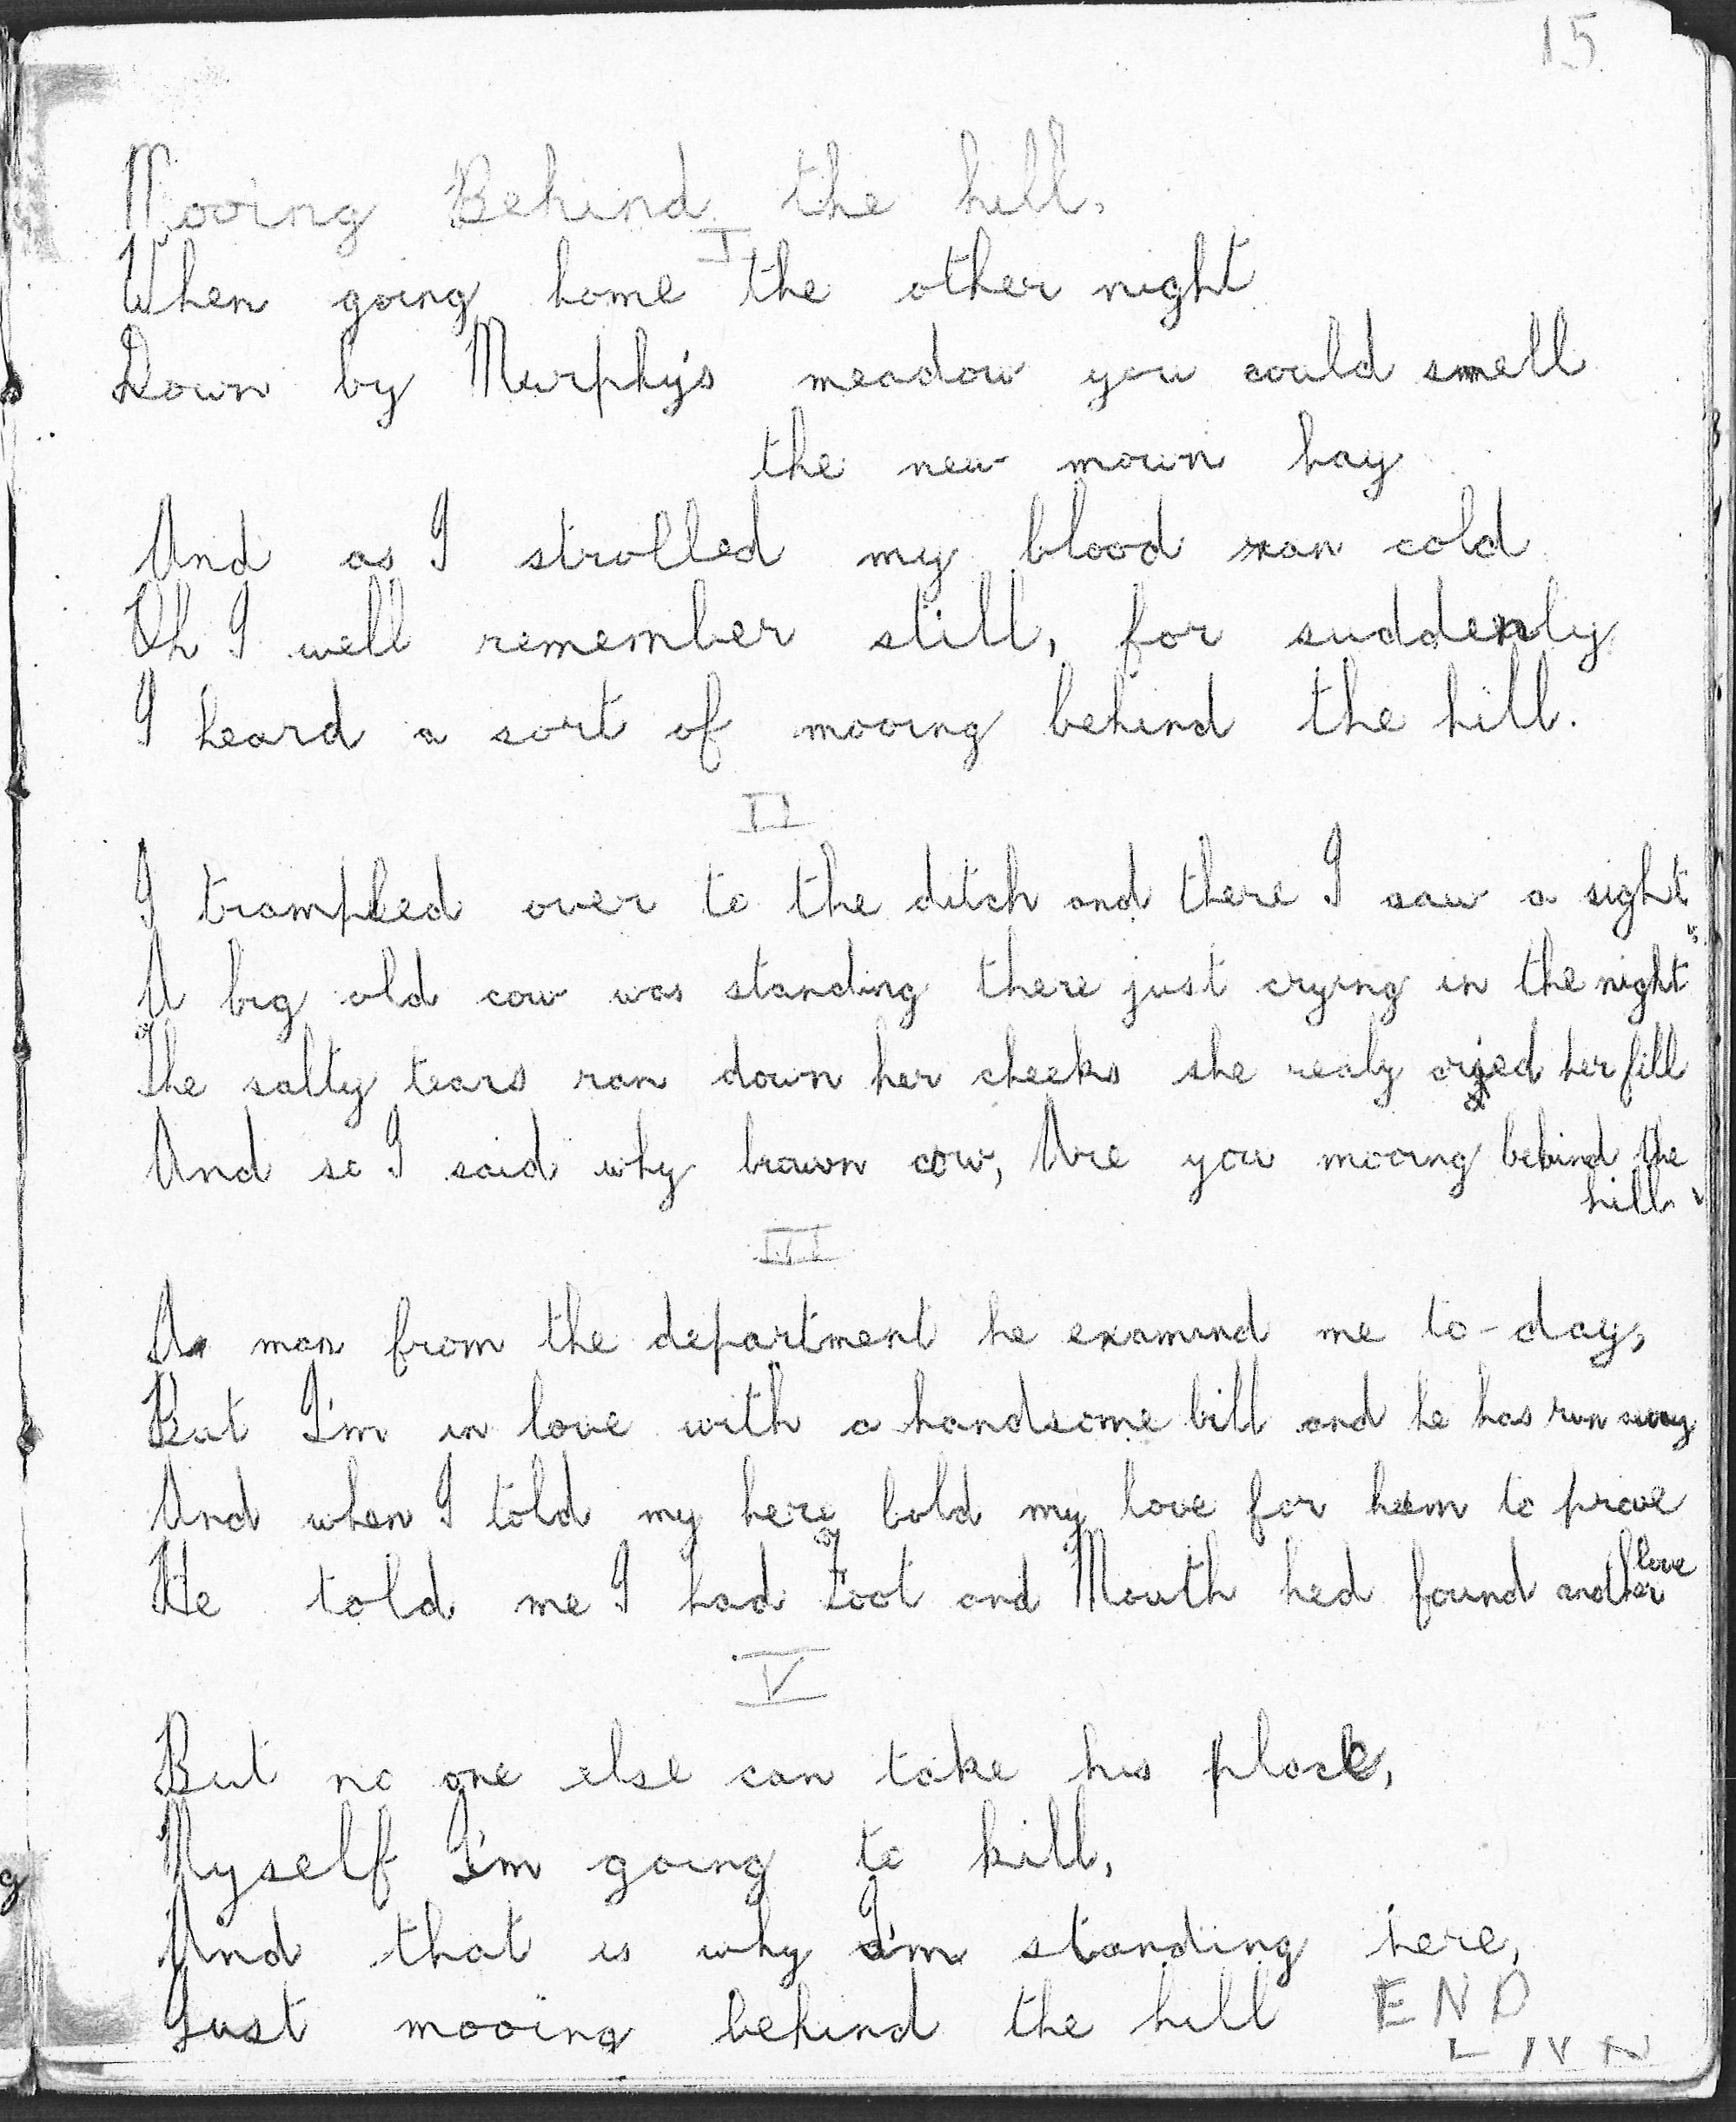 15
Mooing Behind the hill.
I
When going home the other night
Down by Murphy's meadow you could smell
the new mown hay
And as I strolled my blood ran cold
Oh I well remember still, for suddenly
I heard a sort of mooing behind the hill.
II
I trampled over to the ditch and there I saw a sight
A big old cow was standing there just crying in the night
The salty tears ran down her cheeks she realy cried her fill
And so I said why brown cow, Are you mooing behind the
hill
III
A man from the department he examind me to-day,
But I'm in love with a handsome bill and he has run away
And when I told my hero bold my love for him to prove
He told me I had Foot and Mouth hed found another love
V
But no one else can take his place,
Myself I'm going to kill,
And that is why I'm standing here,
Just mooing behind the hill END